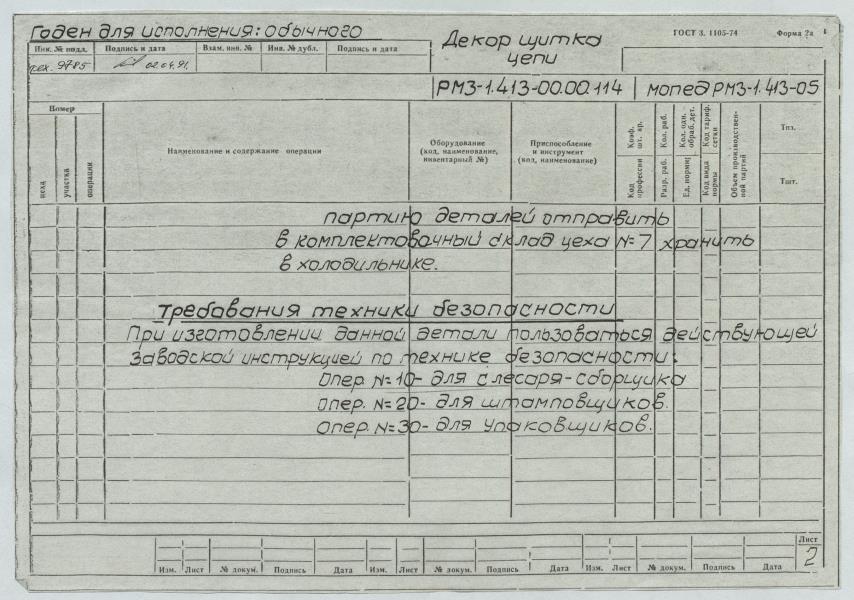 Годен для исполнения: обычного
ГОСТ 3. 1105-74 Форма 2а
Инв. № подл. Подпись и дата Взам. инв. № Инв. № дубл. Подпись и дата
Декор щитка
цепи
тех. 9785 02.04.91.
РМЗ-1.413-00.00.114 мопед РМЗ-1.413-05
Номер
цеха участка операции
Наименование и содержание операции
Оборудование
(код, наименование,
инвентарный №)
Приспособление
и инструмент
(код, наименование)
Коэф. шт. вр.
Код профессии
Кол. раб.
Разр. раб.
Кол. одн. обраб. дет.
Ед. нормир.
Код тариф. сетки
Код вида нормы
Объем производственной партии
Тпз.
Тшт.
партию деталей отправить
в комплектовочный склад цеха №7 хранить
в холодильнике.
Требования техники безопасности
При изготовлении данной детали пользоваться действующей
Заводской инструкцией по технике безопасности:
Опер. №10- для слесаря-сборщика
Опер. №20- для штамповщиков.
Опер. №30- для упаковщиков.
Лист
2
Изм. Лист № докум. Подпись Дата Изм. Лист № докум. Подпись Дата Изм. Лист № докум. Подпись Дата